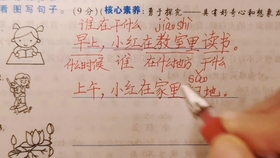 看图写句子。(9分)(核心素养:勇于探究——具有好奇心和想象
谁在干什么 jiāoshì
早上,小红在教室里读书。
什么时候 谁 在什么地方 干什么
上午,小红在家里 地。